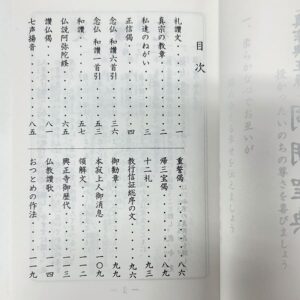 目次
礼讃文・・・・・一
真宗の教章・・・・・二
私達のねがい・・・・・三
正信偈・・・・・四
念仏 和讃六首引・・・・・三六
念仏 和讃一首引・・・・・五三
和讃・・・・・
仏説阿弥陀経・・・・・六五
讃仏偈・・・・・八一
七声揚音・・・・・八五
重誓偈・・・・・八六
帰三宝偈・・・・・八八
十二礼・・・・・九三
教行信証総序の文・・・・・九六
御勧章・・・・・九九
本寂上人御消息・・・・・一〇九
領解文・・・・・一一二
興正寺御歴代・・・・・一一三
仏教讃歌・・・・・一一四
おつとめの作法・・・・・一一九
いのちの尊さを喜びましょう